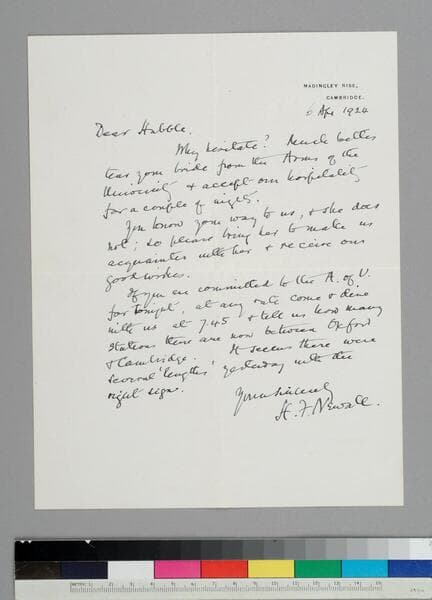 MADINGLEY RISE,
CAMBRIDGE.
6 Apr 1924
Dear Hubble.
Why hesitate? Much better
tear your bride from the Arms of the
University & accept our hospitality
for a couple of nights.
You know your way to us, & she does
not; so please bring her to make us
acquainted with her & receive our
good wishes.
If you are committed to the A. of U.
for tonight, at any rate come & dine
with us at 7.45 & tell us how many
stations there are now between Oxford
& Cambridge. It seems there were
several 'lengths' yesterday with the
right sign.
Yours sincerely
H. F. Newall.